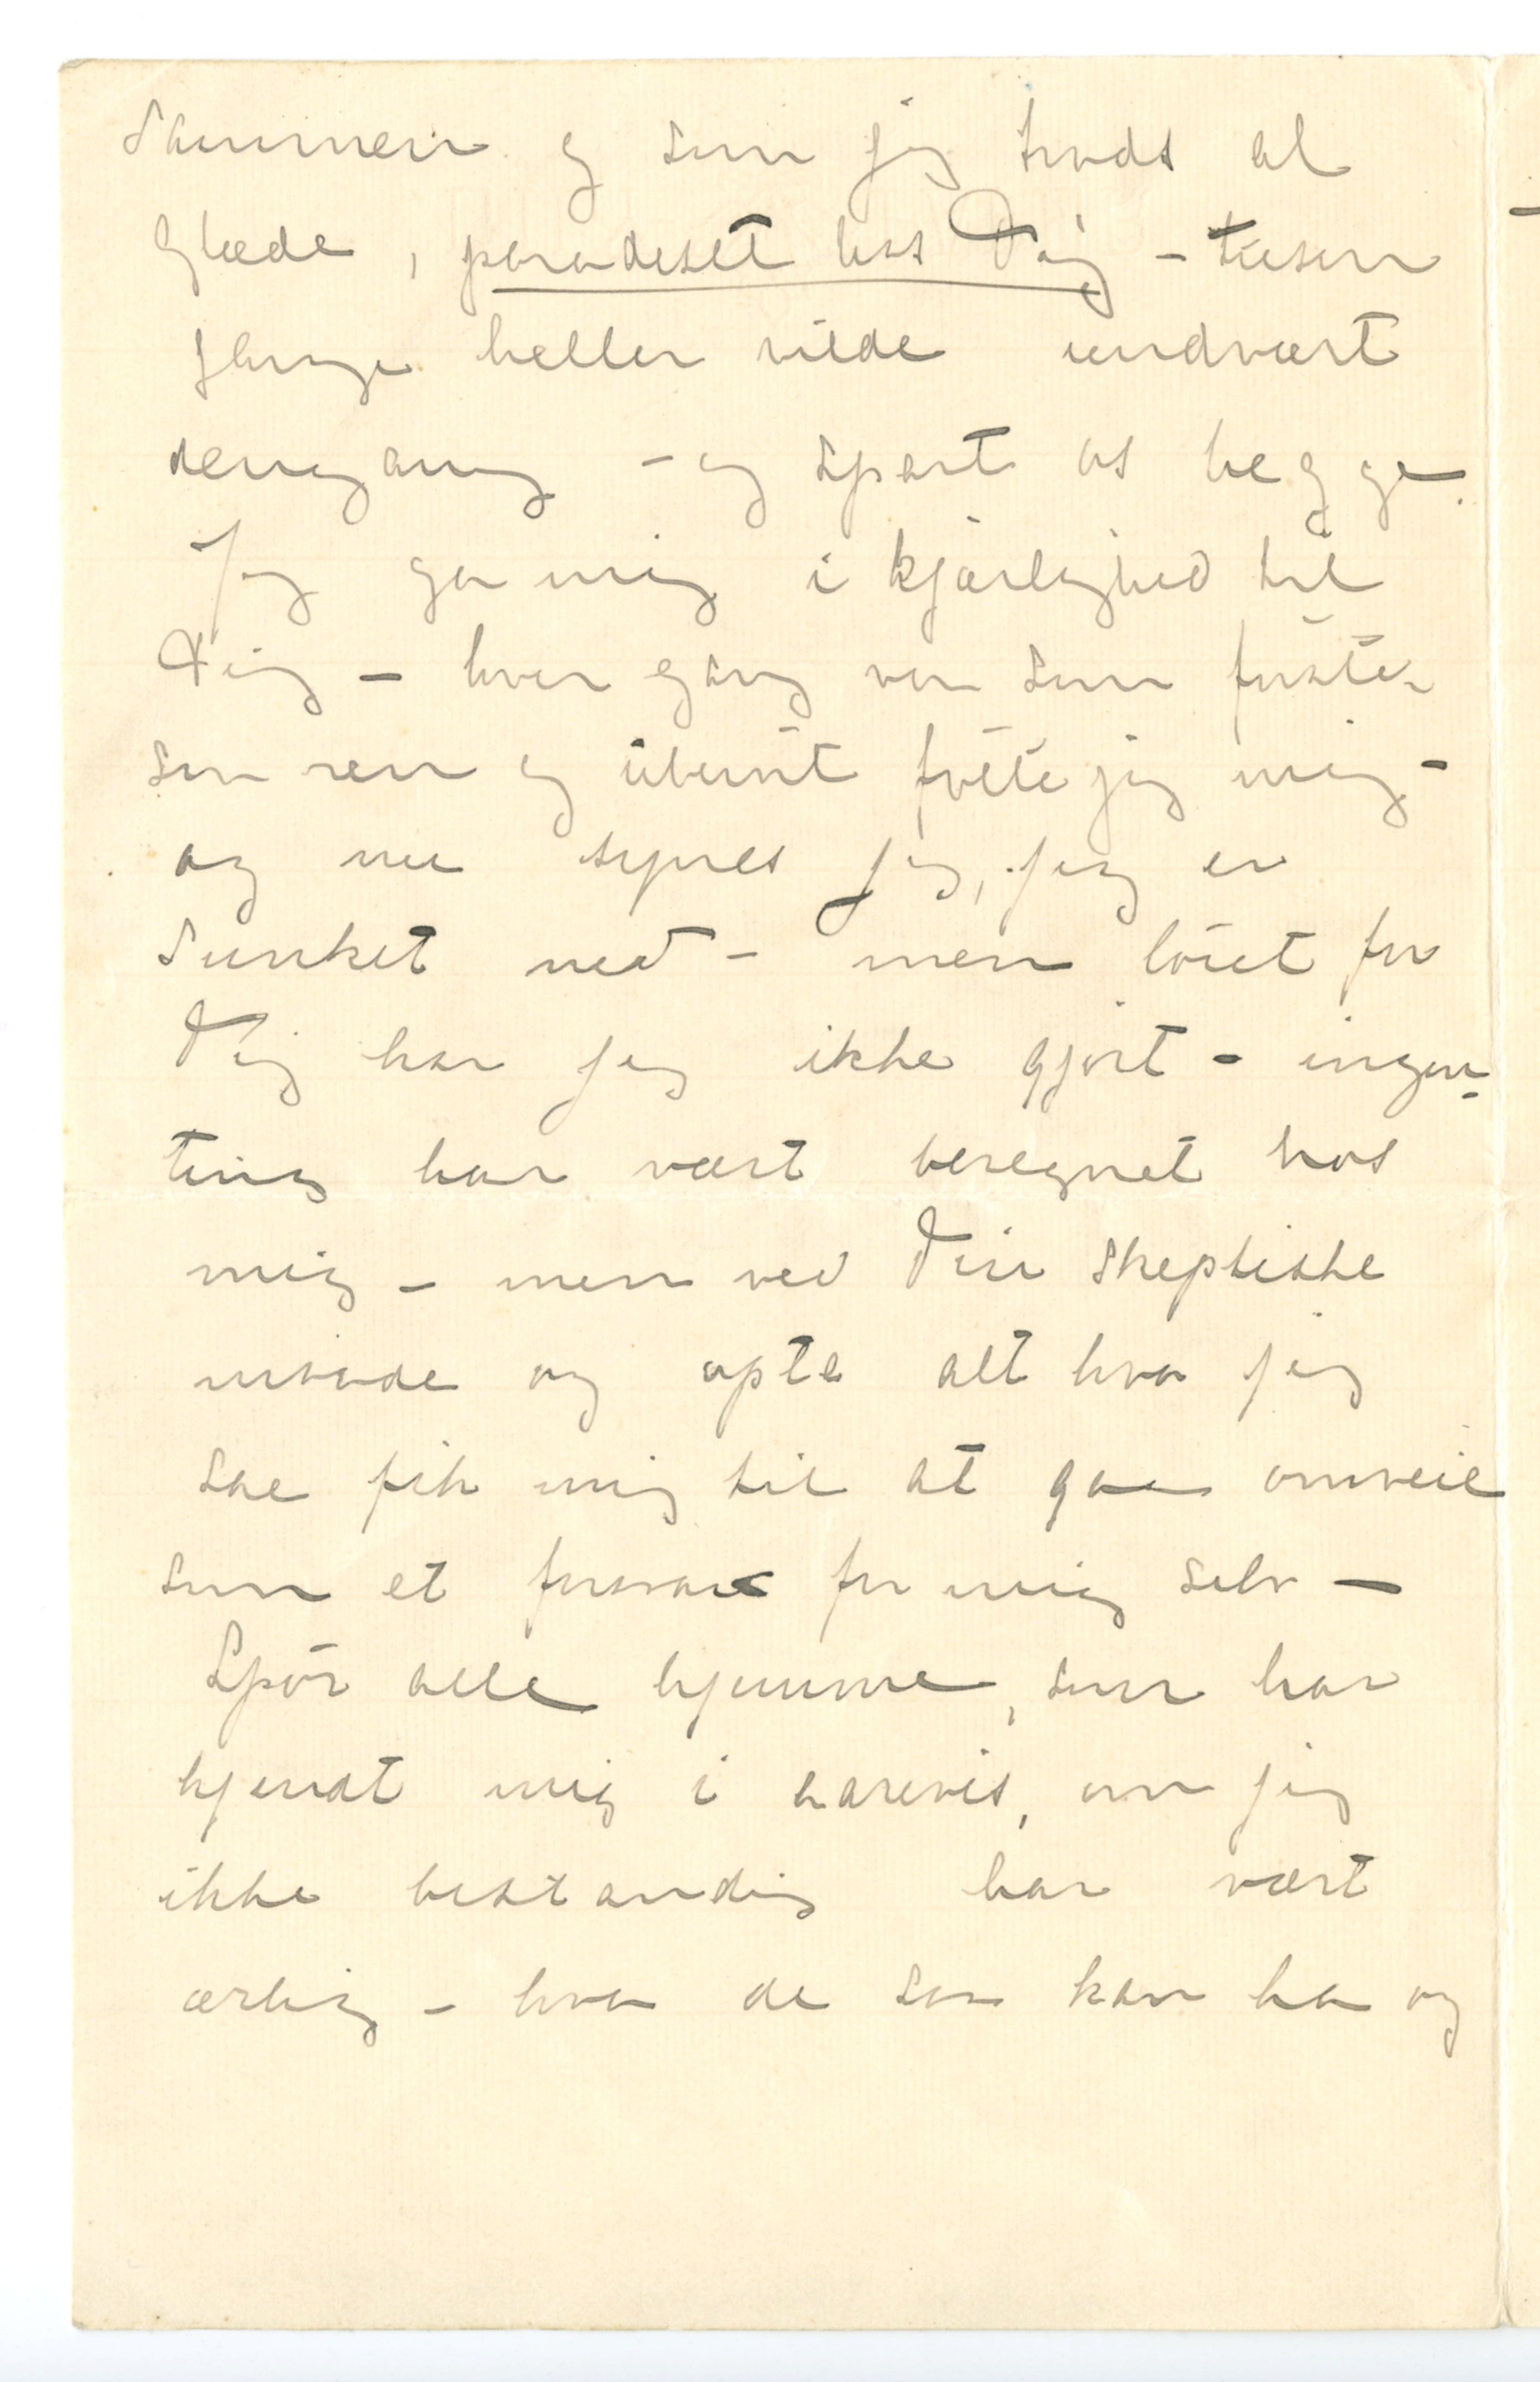 sammen og som jeg trods al
glæde, paradeset hos Dig – tusen
ganger heller vilde undvært
dengang – og spart os begge.
Jeg ga mig i kjærlighed til
Dig – hver gang var som første –
som ren og uberørt følte jeg mig –
og nu synes jeg, jeg er
sunket ned – men løiet for
Dig har jeg ikke gjort – ingen-
ting har vært beregnet hos
mig – men ved Din skeptiske
maade og opta alt hva jeg
sae fik mig til at gaa omveie
som et forsvar for mig selv –
Spør alle hjemme, som har
kjendt mig i aarevis, om jeg
ikke bestandig har vært
ærlig – hva de saa kan ha og